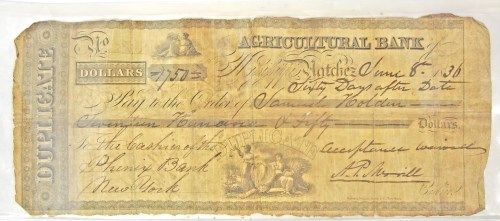 DUPLICATE
No
AGRICULTURAL BANK
DOLLARS 1750
Natchez June 8 1836
Sixty Days after Date
Pay to the Order of Samuel Holden
Seventeen Hundred & Fifty Dollars.
To the Cashier of the acceptance waived
Phenix Bank
New York
Cashier